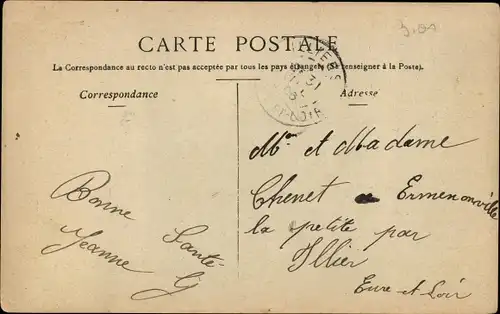 3.01
CARTE POSTALE
La Correspondance au recto n'est pas acceptée par tous les pays étrangers (Se renseigner à la Poste).
Correspondance
Adresse
Bonne
Santé
Jeanne
Mr et Madame
Chenet Ermenonville
la petite par
Illier
Eure et Loir